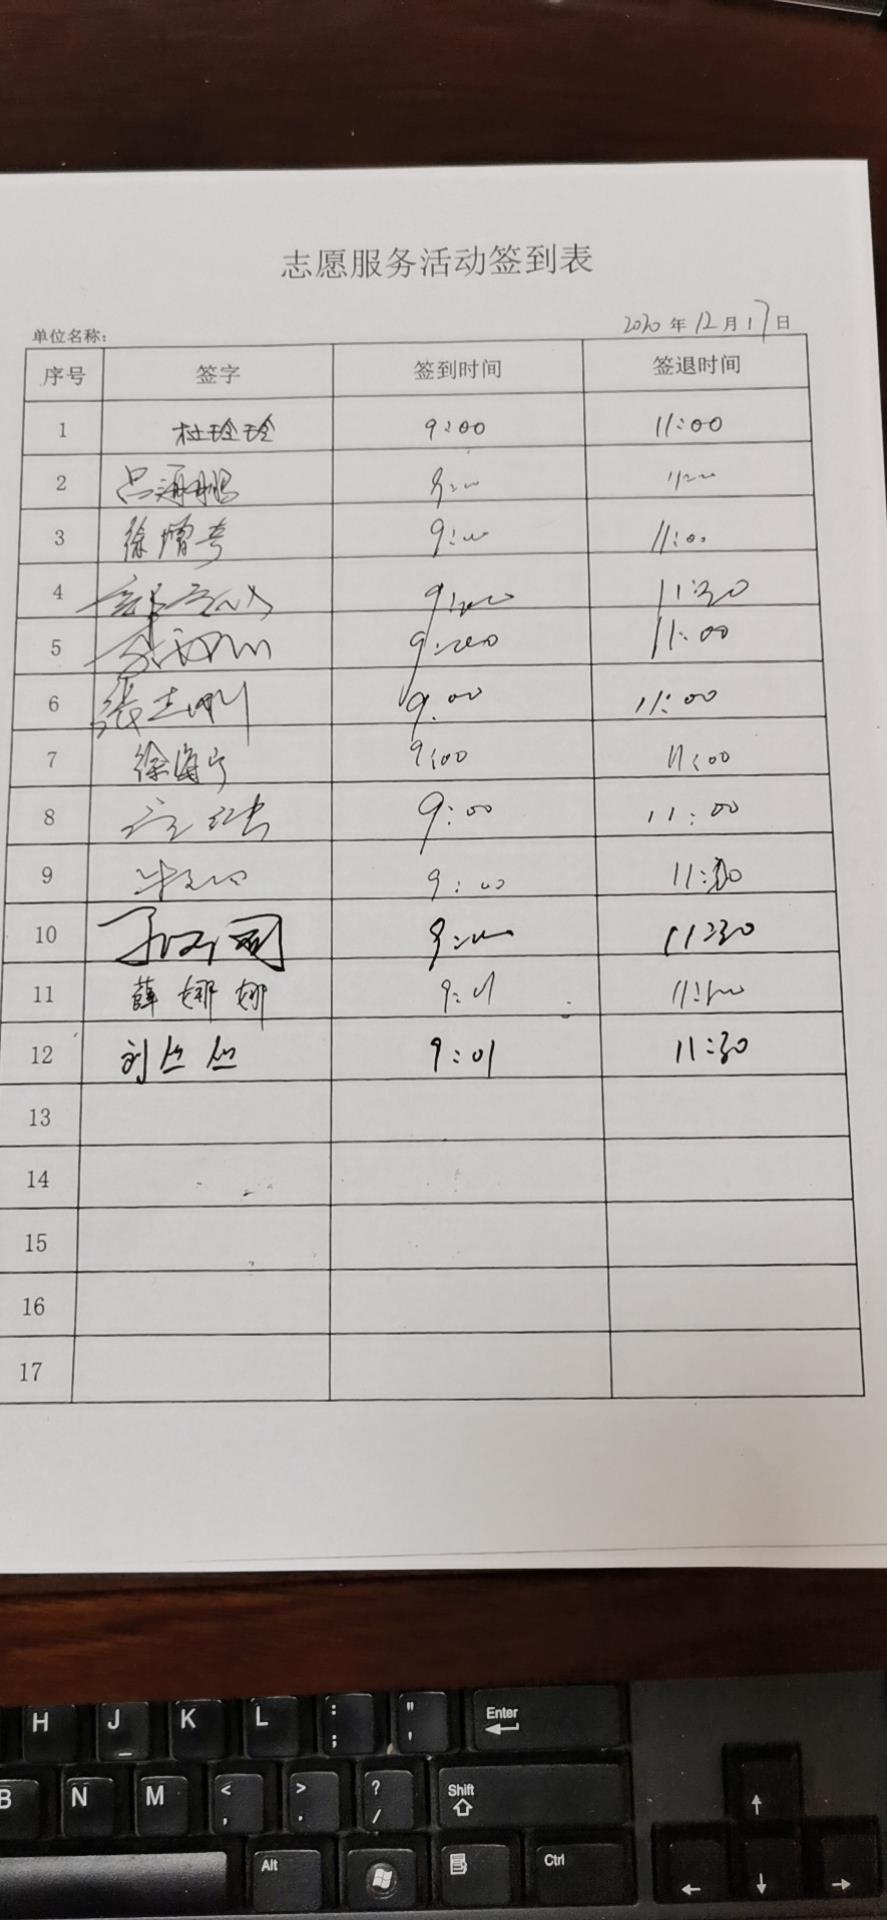 志愿服务活动签到表
单位名称: 2020年12月17日
序号 签字 签到时间 签退时间
1 杜玲玲 9:00 11:00
2 吕海鹏 9:00 11:00
3 徐增喜 9:00 11:00
4 9:00 11:30
5 9:00 11:00
6 張志刚 9:00 11:00
7 徐海宁 9:00 11:00
8 9:00 11:00
9 9:00 11:30
10 9:00 11:30
11 薛娜娜 9:01 11:00
12 刘丝丝 9:01 11:30
13
14
15
16
17
H J K L : ; " ' Enter
B N M < , > . ? / Shift
Alt Ctrl